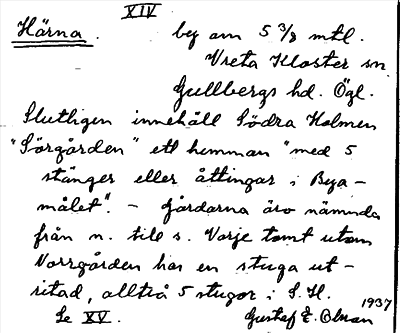 XIV
Härna. by om 5 3/8 mtl.
Vreta Kloster sn
Gullbergs hd. Ögl.
Slutligen innehåll Södra Holmen
"Sörgården" ett hemman "med 5
stänger eller åttingar i Bya-
målet". - Gårdarna äro nämnda
från n. till s. Varje tomt utom
Norrgården har en stuga ut-
ritad, alltså 5 stugor i S. H.
Se XV. Gustaf E. Olman 1937